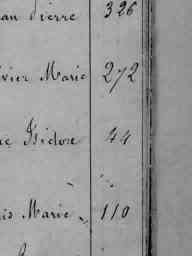 an Pierre 326
ivier Marie 272
ac Isidore 44
is Marie 110